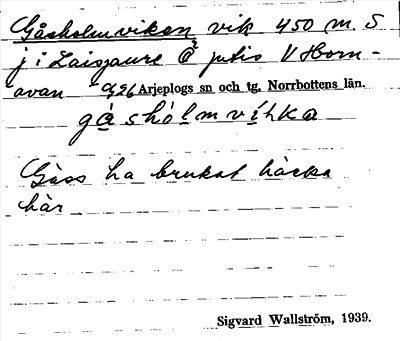 Gåsholmviken vik 450 m. S
j i Laisjaure Ö jutis V Horn-
avan Arjeplogs sn och tg. Norrbottens län.
gåshólmvíhka
Gäss ha brukat häcka
här
Sigvard Wallström, 1939.